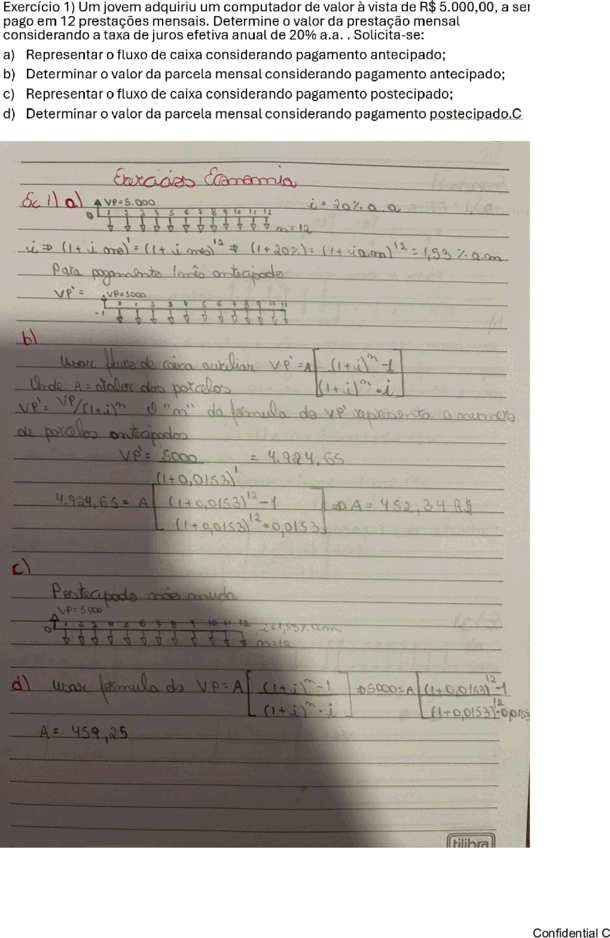 Exercício 1) Um jovem adquiriu um computador de valor à vista de R$ 5.000,00, a ser
pago em 12 prestações mensais. Determine o valor da prestação mensal
considerando a taxa de juros efetiva anual de 20% a.a. . Solicita-se:
a) Representar o fluxo de caixa considerando pagamento antecipado;
b) Determinar o valor da parcela mensal considerando pagamento antecipado;
c) Representar o fluxo de caixa considerando pagamento postecipado;
d) Determinar o valor da parcela mensal considerando pagamento postecipado.C
Exercícios Economia
Ex 1) a) VP=5.000 i = 20% a.a
0 1 2 3 4 5 6 7 8 9 10 11 12
n=12
i => (1+i ano)^1 = (1+i mes)^12 => (1+20%) = (1+i a.m)^12 = 1,53 % a.m
Para pagamento 1 mês antecipado
VP' = VP=5000
-1 0 1 2 3 4 5 6 7 8 9 10 11
b)
Usar fluxo de caixa auxiliar VP'=A[(1+i)^n-1
(1+i)^n.i]
Onde A = valor das parcelas
VP'= VP/(1+i)^n O "n" da fórmula do VP' representa o numero
de parcelas antecipadas
VP'= 5000 = 4.924,65
(1+0,0153)^1
4.924,65 = A [(1+0,0153)^12-1 => A = 452,34 R$
(1+0,0153)^12.0,0153]
c)
Postecipado não muda
VP=5000
0 1 2 3 4 5 6 7 8 9 10 11 12 i=1,53% a.m
n=12
d) usar formula do VP=A[(1+i)^n-1 => 5000=A[(1+0,0153)^12-1
(1+i)^n.i] (1+0,0153)^12.0,0153
A = 459,25
tilibra
Confidential C